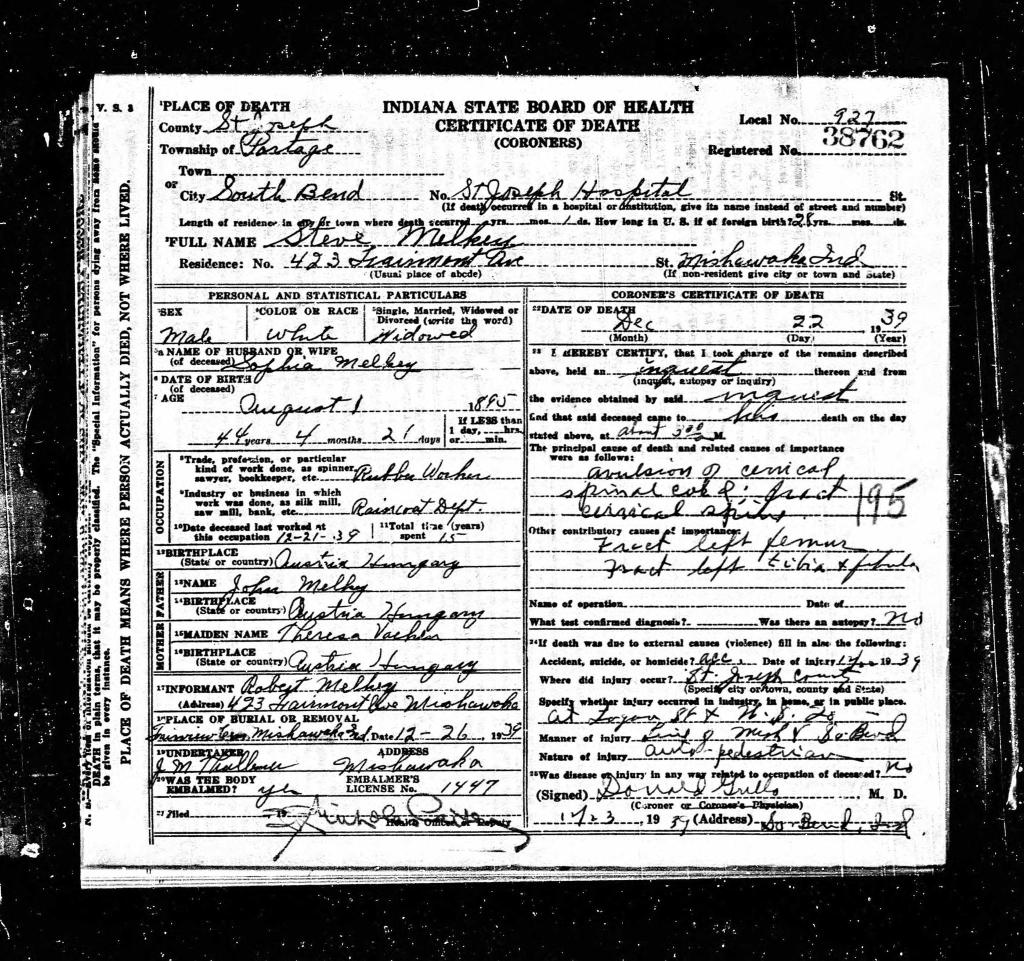 V. S. 3
PLACE OF DEATH MEANS WHERE PERSON ACTUALLY DIED, NOT WHERE LIVED.
DEATH in plain terms, that it may be properly classified. The "Special Information" for persons dying away from home should
be given in every instance.
INDIANA STATE BOARD OF HEALTH
CERTIFICATE OF DEATH
(CORONERS)
Local No. 927
Registered No. 38762
1PLACE OF DEATH
County St Joseph
Township of Portage
Town
or
City South Bend No. St Joseph Hospital St.
(If death occurred in a hospital or institution, give its name instead of street and number)
Length of residence in city or town where death occurred yrs. mos. 1 ds. How long in U. S. if of foreign birth? 28 yrs. mos. ds.
2FULL NAME Steve Melkey
Residence: No. 423 Ave St. Mishawaka Ind
(Usual place of abode) (If non-resident give city or town and State)
PERSONAL AND STATISTICAL PARTICULARS
3SEX 4COLOR OR RACE 5Single, Married, Widowed or
Divorced (write the word)
Male White Widowed
5a NAME OF HUSBAND OR WIFE
(of deceased) Sophia Melkey
6 DATE OF BIRTH
(of deceased)
7 AGE August 1 1895
If LESS than
1 day, hrs.
44 years 4 months 21 days or min.
OCCUPATION
8Trade, profession, or particular
kind of work done, as spinner,
sawyer, bookkeeper, etc. Rubber Worker
9Industry or business in which
work was done, as silk mill,
saw mill, bank, etc. Raincoat Dept.
10Date deceased last worked at
this occupation 12-21-39
11Total time (years)
spent 15
12BIRTHPLACE
(State or country) Austria Hungary
FATHER
13NAME John Melkey
14BIRTHPLACE
(State or country) Austria Hungary
MOTHER
15MAIDEN NAME Theresa
16BIRTHPLACE
(State or country) Austria Hungary
17INFORMANT Robert Melkey
(Address) 423 Ave Mishawaka
18PLACE OF BURIAL OR REMOVAL
Mishawaka Ind. Date 12-26 1939
19UNDERTAKER ADDRESS
J. M. Mishawaka
20WAS THE BODY
EMBALMED? yes
EMBALMER'S
LICENSE No. 1447
21Filed 19
Health Officer or Deputy
CORONER'S CERTIFICATE OF DEATH
22DATE OF DEATH
Dec 22 1939
(Month) (Day) (Year)
23 I HEREBY CERTIFY, that I took charge of the remains described
above, held an inquest thereon and from
(inquest, autopsy or inquiry)
the evidence obtained by said inquest
find that said deceased came to his death on the day
stated above, at about 3 00 M.
The principal cause of death and related causes of importance
were as follows:
avulsion of cervical
spinal cord; fract
cervical spine
195
Other contributory causes of importance:
Fract left femur
Fract left tibia & fibula
Name of operation Date of
What test confirmed diagnosis? Was there an autopsy? no
24If death was due to external causes (violence) fill in also the following:
Accident, suicide, or homicide? acc. Date of injury 1939
Where did injury occur? St. Joseph County
(Specify city or town, county and State)
Specify whether injury occurred in industry, in home, or in public place.
At Logan St &
Manner of injury Mish & So Bend
Nature of injury auto-pedestrian
25Was disease or injury in any way related to occupation of deceased? no
(Signed) Donald Grillo M. D.
(Coroner or Coroner's Physician)
12/23 1939 (Address) So Bend, Ind.